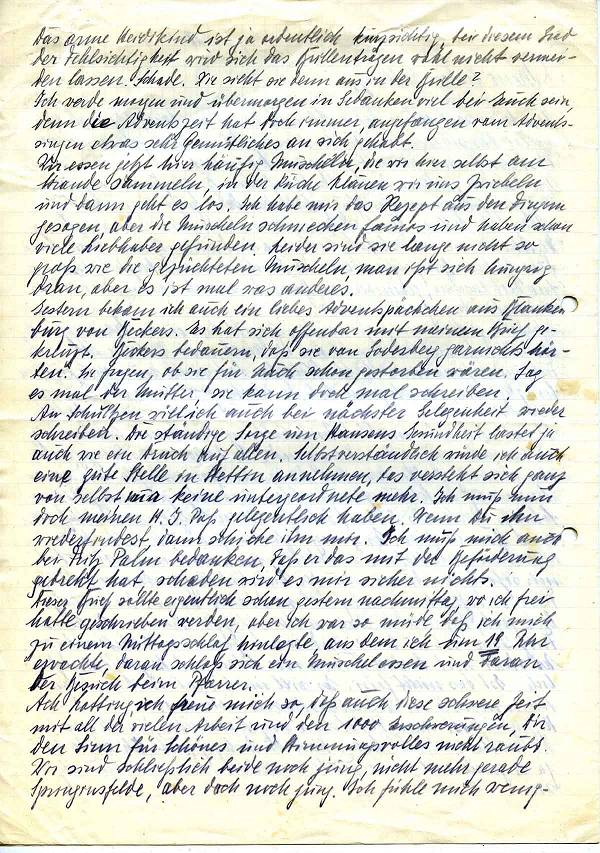 Das arme Heidikind ist ja ordentlich kurzsichtig bei diesem Grad
der Fehlsichtigkeit wird sich das Brillentragen wohl nicht vermei-
den lassen. Schade. Wie sieht sie denn aus in der Brille?
Ich werde morgen und übermorgen in Gedanken viel bei Euch sein,
denn die Adventszeit hat doch immer, angefangen vom Advents-
singen etwas sehr Gemütliches an sich gehabt.
Wir essen jetzt hier häufig Muscheln, die wir hier selbst am
Strande sammeln, in der Küche klauen wir uns Zwiebeln
und dann geht es los. Ich habe mir das Rezept aus den Fingern
gesogen, aber die Muscheln schmecken famos und haben schon
viele Liebhaber gefunden. Leider sind sie lange nicht so
groß wie die gezüchteten Muscheln, man ißt sich hungrig
dran, aber es ist mal was anderes.
Gestern bekam ich auch ein liebes Adventspäckchen aus Blanken
burg von Beckers. Es hat sich offenbar mit meinem Brief ge-
kreuzt. Beckers bedauern, daß sie von Godesberg garnichts hör-
ten. Sie fragen, ob sie für Euch schon gestorben wären. Sag
es mal der Mutter, sie kann doch mal schreiben.
An will ich auch bei nächster Gelegenheit wieder
schreiben. Die ständige Sorge um Hansens Gesundheit lastet ja
auch wie ein Druck auf allen. Selbstverständlich würde ich auch
eine gute Stelle in Stettin annehmen, das versteht sich ganz
von selbst keine untergeordnete mehr. Ich muß nun
doch meinen H. J. Paß gelegentlich haben. Wenn Du ihn
wiederfindest, dann schicke ihn mir. Ich muß mich auch
bei Fritz Palm bedanken, daß er das mit der Beförderung
gedreht hat, schaden wird es mir sicher nichts.
Dieser Brief sollte eigentlich schon gestern nachmittag, wo ich frei
hatte geschrieben werden, aber ich war so müde daß ich mich
zu einem Mittagsschlaf hinlegte aus dem ich um 19 Uhr
erwachte, daran schloß sich ein Muschelessen und daran
der Besuch beim Pfarrer.
Ach ich freue mich so, daß auch diese schwere Zeit
mit all der vielen Arbeit und den 1000 Erschwerungen, Dir
den Sinn für Schönes und Stimmungsvolles nicht raubt.
Wir sind schließlich beide noch jung, nicht mehr gerade
Springinsfelde, aber doch noch jung. Ich fühle mich wenig-